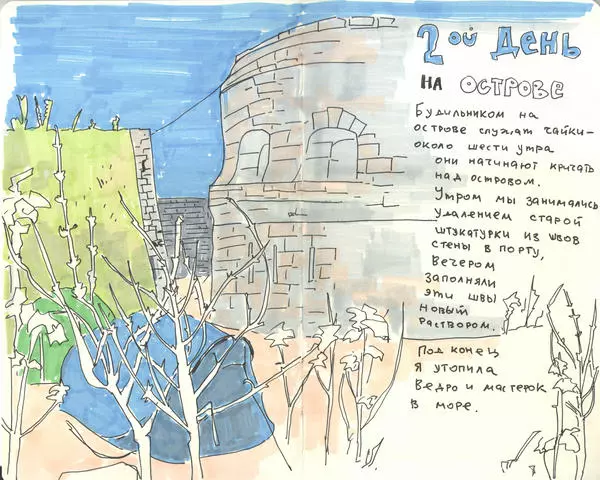 2ой День
на острове
Будильником на
острове служат чайки–
около шести утра
они начинают кричать
над островом.
Утром мы занимались
удалением старой
штукатурки из швов
стены в порту,
Вечером
заполняли
эти швы
новый
раствором.
Под конец
я утопила
Ведро и мастерок
в море.